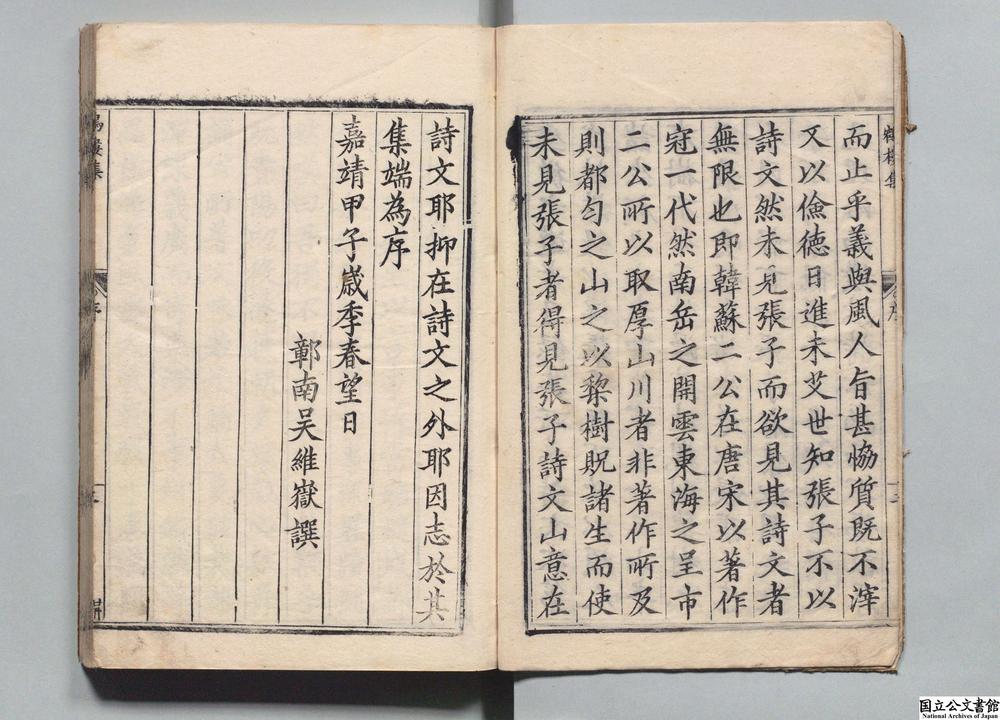 而止乎義與風人旨甚恊質既不滓
又以儉徳日進未艾世知張子不以
詩文然未見張子而欲見其詩文者
無限也即韓蘇二公在唐宋以著作
冠一代然南岳之開雲東海之呈市
二公所以取厚山川者非著作所及
則都勻之山之以棃樹貺諸生而使
未見張子者得見張子詩文山意在
詩文耶抑在詩文之外耶因志於其
集端為序
嘉靖甲子歲季春望日
鄣南吴維嶽譔
樓集
序
三
國立公文書館
National Archives of Japan